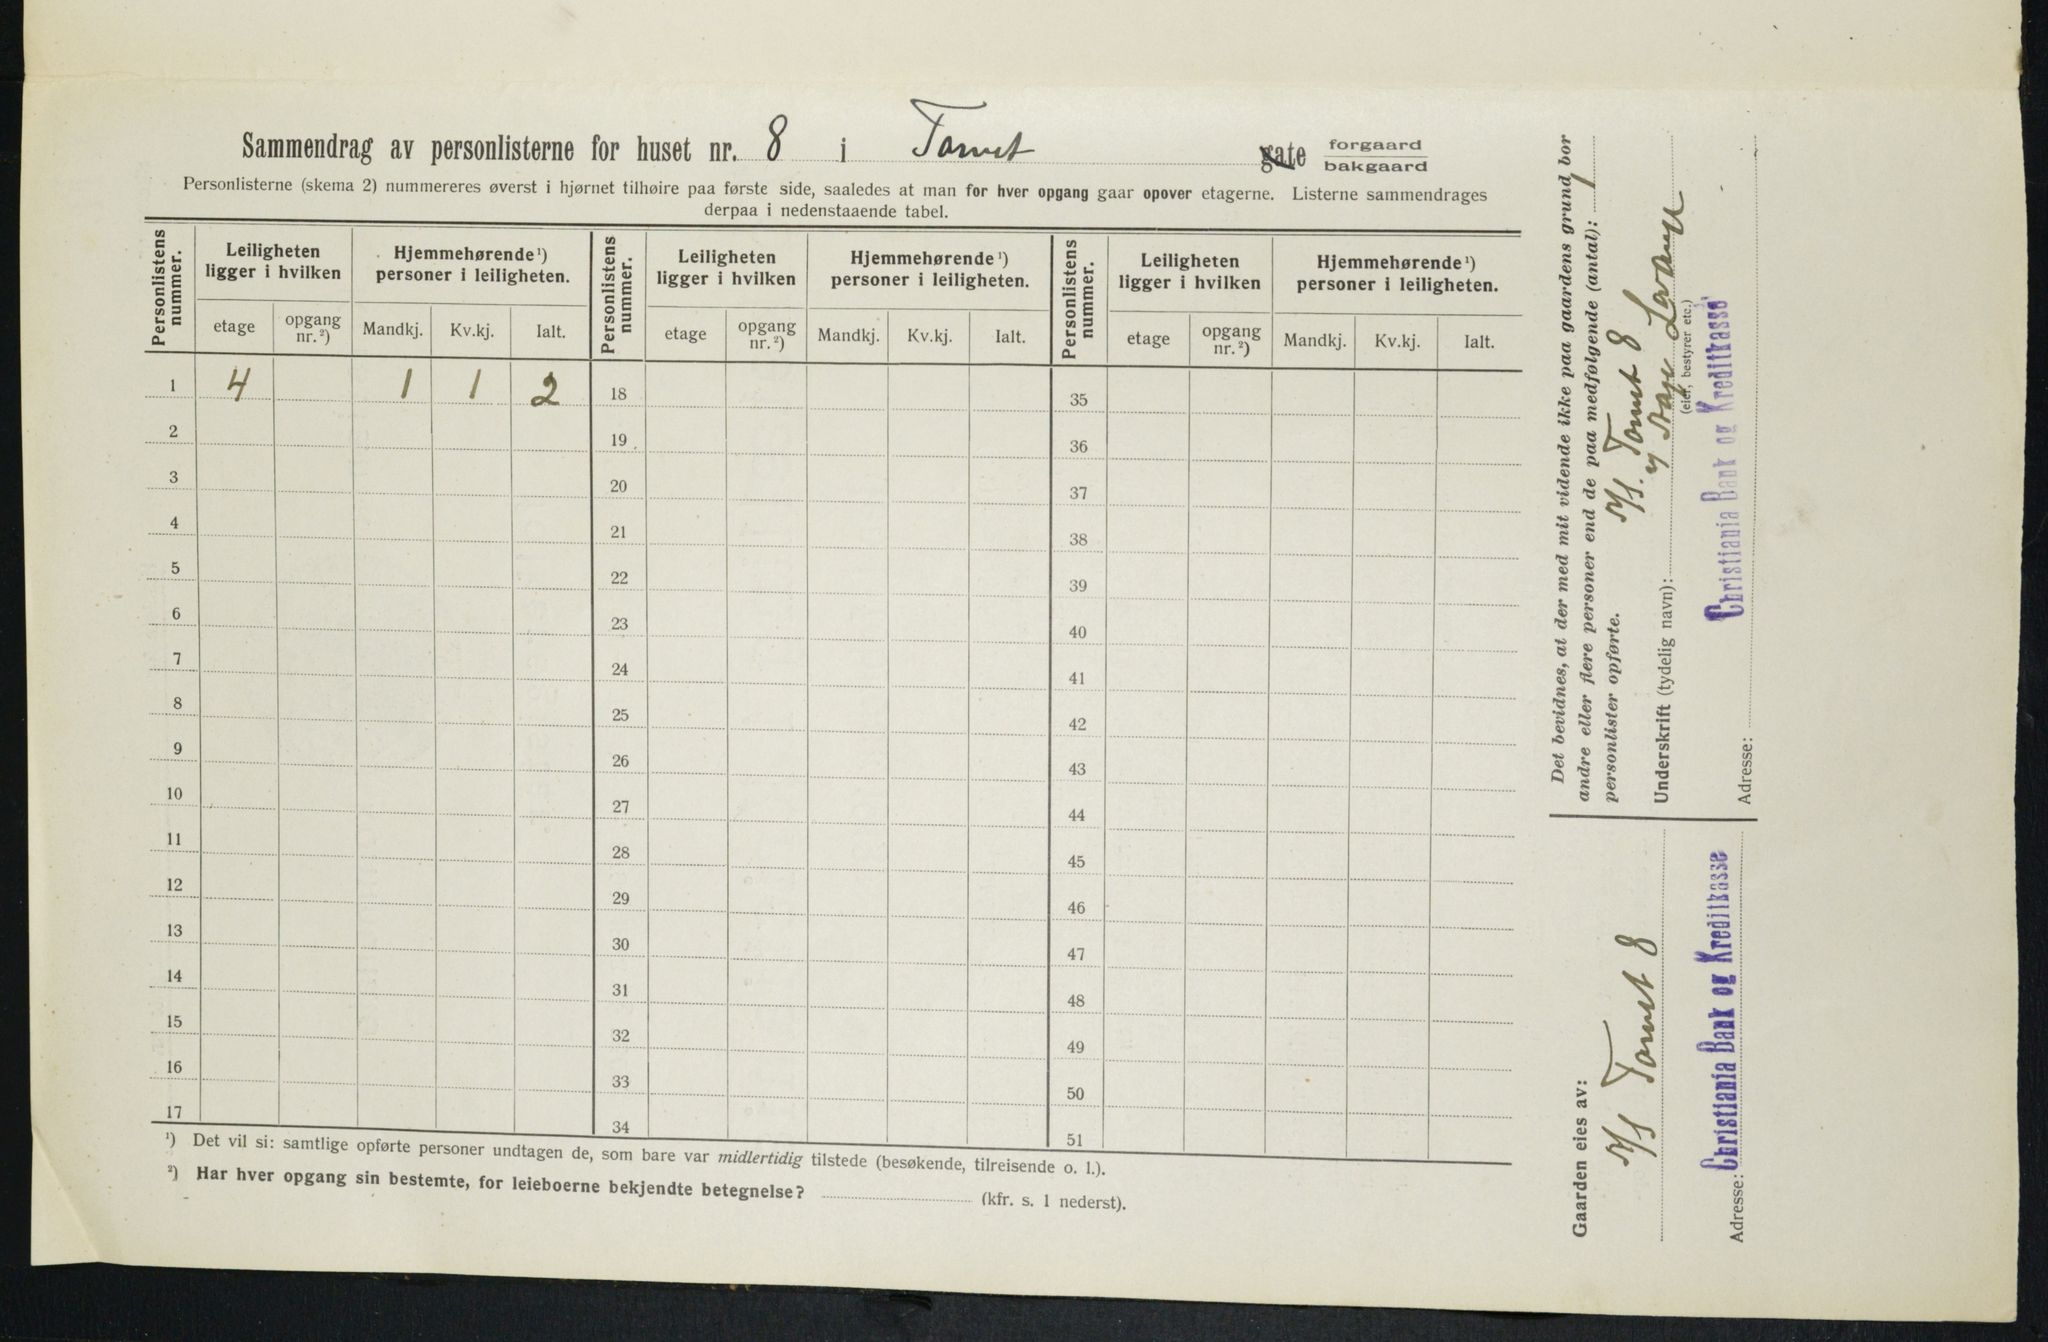 Sammendrag av personlisterne for huset nr. 8 i Torvet gate forgaard bakgaard
Personlisterne (skema 2) nummereres øverst i hjørnet tilhøire paa første side, saaledes at man for hver opgang gaar opover etagerne. Listerne sammendrages
derpaa i nedenstaaende tabel.
Personlistens nummer. Leiligheten ligger i hvilken Hjemmehørende ¹) personer i leiligheten. Personlistens nummer. Leiligheten ligger i hvilken Hjemmehørende ¹) personer i leiligheten. Personlistens nummer. Leiligheten ligger i hvilken Hjemmehørende ¹) personer i leiligheten.
etage opgang nr. ²) Mandkj. Kv.kj. Ialt. etage opgang nr. ²) Mandkj. Kv.kj. Ialt. etage opgang nr. ²) Mandkj. Kv.kj. Ialt.
1 4 1 1 2 18 35
2 19 36
3 20 37
4 21 38
5 22 39
6 23 40
7 24 41
8 25 42
9 26 43
10 27 44
11 28 45
12 29 46
13 30 47
14 31 48
15 32 49
16 33 50
17 34 51
¹) Det vil si: samtlige opførte personer undtagen de, som bare var midlertidig tilstede (besøkende, tilreisende o. l.).
²) Har hver opgang sin bestemte, for leieboerne bekjendte betegnelse? (kfr. s. 1 nederst).
Det bevidnes, at der med mit vidende ikke paa gaardens grund bor
andre eller flere personer end de paa medfølgende (antal): 1
personlister opførte.
A/S. Torvet 8
Underskrift (tydelig navn):
(eier, bestyrer etc.)
Christiania Bank og Kreditkasse
Adresse:
Gaarden eies av:
A/S Torvet 8
Adresse: Christiania Bank og Kreditkasse